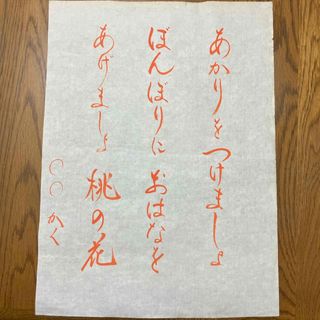 あかりをつけましょ
ぼんぼりにおはなを
あげましょ桃の花
〇〇かく